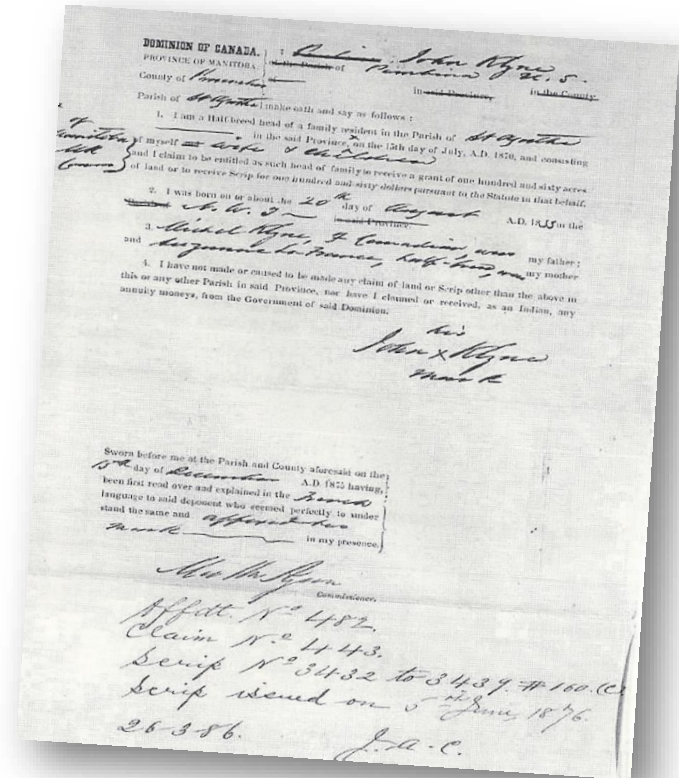 DOMINION OF CANADA. I John Klyne
PROVINCE OF MANITOBA. of Pembina U. S.
County of Provencher in said Province, in the County
Parish of St Agathe I make oath and say as follows :
1. I am a Half-breed head of a family resident in the Parish of St Agathe
in the said Province, on the 15th day of July, A.D. 1870, and consisting
of myself wife & children
and I claim to be entitled as such head of family to receive a grant of one hundred and sixty acres
of land or to receive Scrip for one hundred and sixty dollars pursuant to the Statute in that behalf.
2. I was born on or about the 20th day of August A.D. 1835 in the
N. W. T in said Province.
3. Michel Klyne, F Canadian, was my father ;
and Suzanne La France, half-breed, was my mother
4. I have not made or caused to be made any claim of land or Scrip other than the above in
this or any other Parish in said Province, nor have I claimed or received, as an Indian, any
annuity moneys, from the Government of said Dominion.
his
John x Klyne
mark
Sworn before me at the Parish and County aforesaid on the
15th day of December A.D. 1875 having,
been first read over and explained in the French
language to said deponent who seemed perfectly to under
stand the same and affixed his
mark in my presence.
Commissioner.
Affdt. No 482.
Claim No. 443.
Scrip No 3432 to 3439. #160. (C)
Scrip issued on 5th June, 1876.
26-3-86. J. A. C.